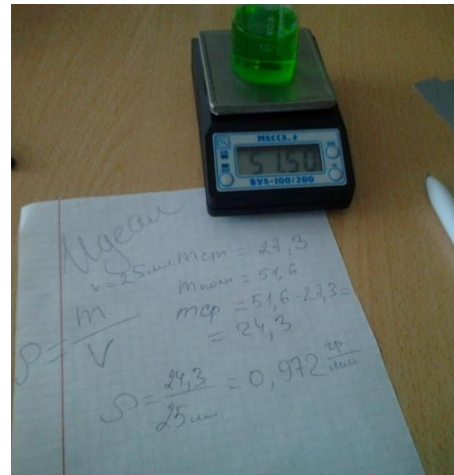 МАССА, г
51.50
ВУЛ-100/200
Идеал
v = 25 мл mст = 27,3
mполн = 51,6
ρ = m/V
mср = 51,6 - 27,3 =
= 24,3
ρ = 24,3/25 мл = 0,972 гр./мл